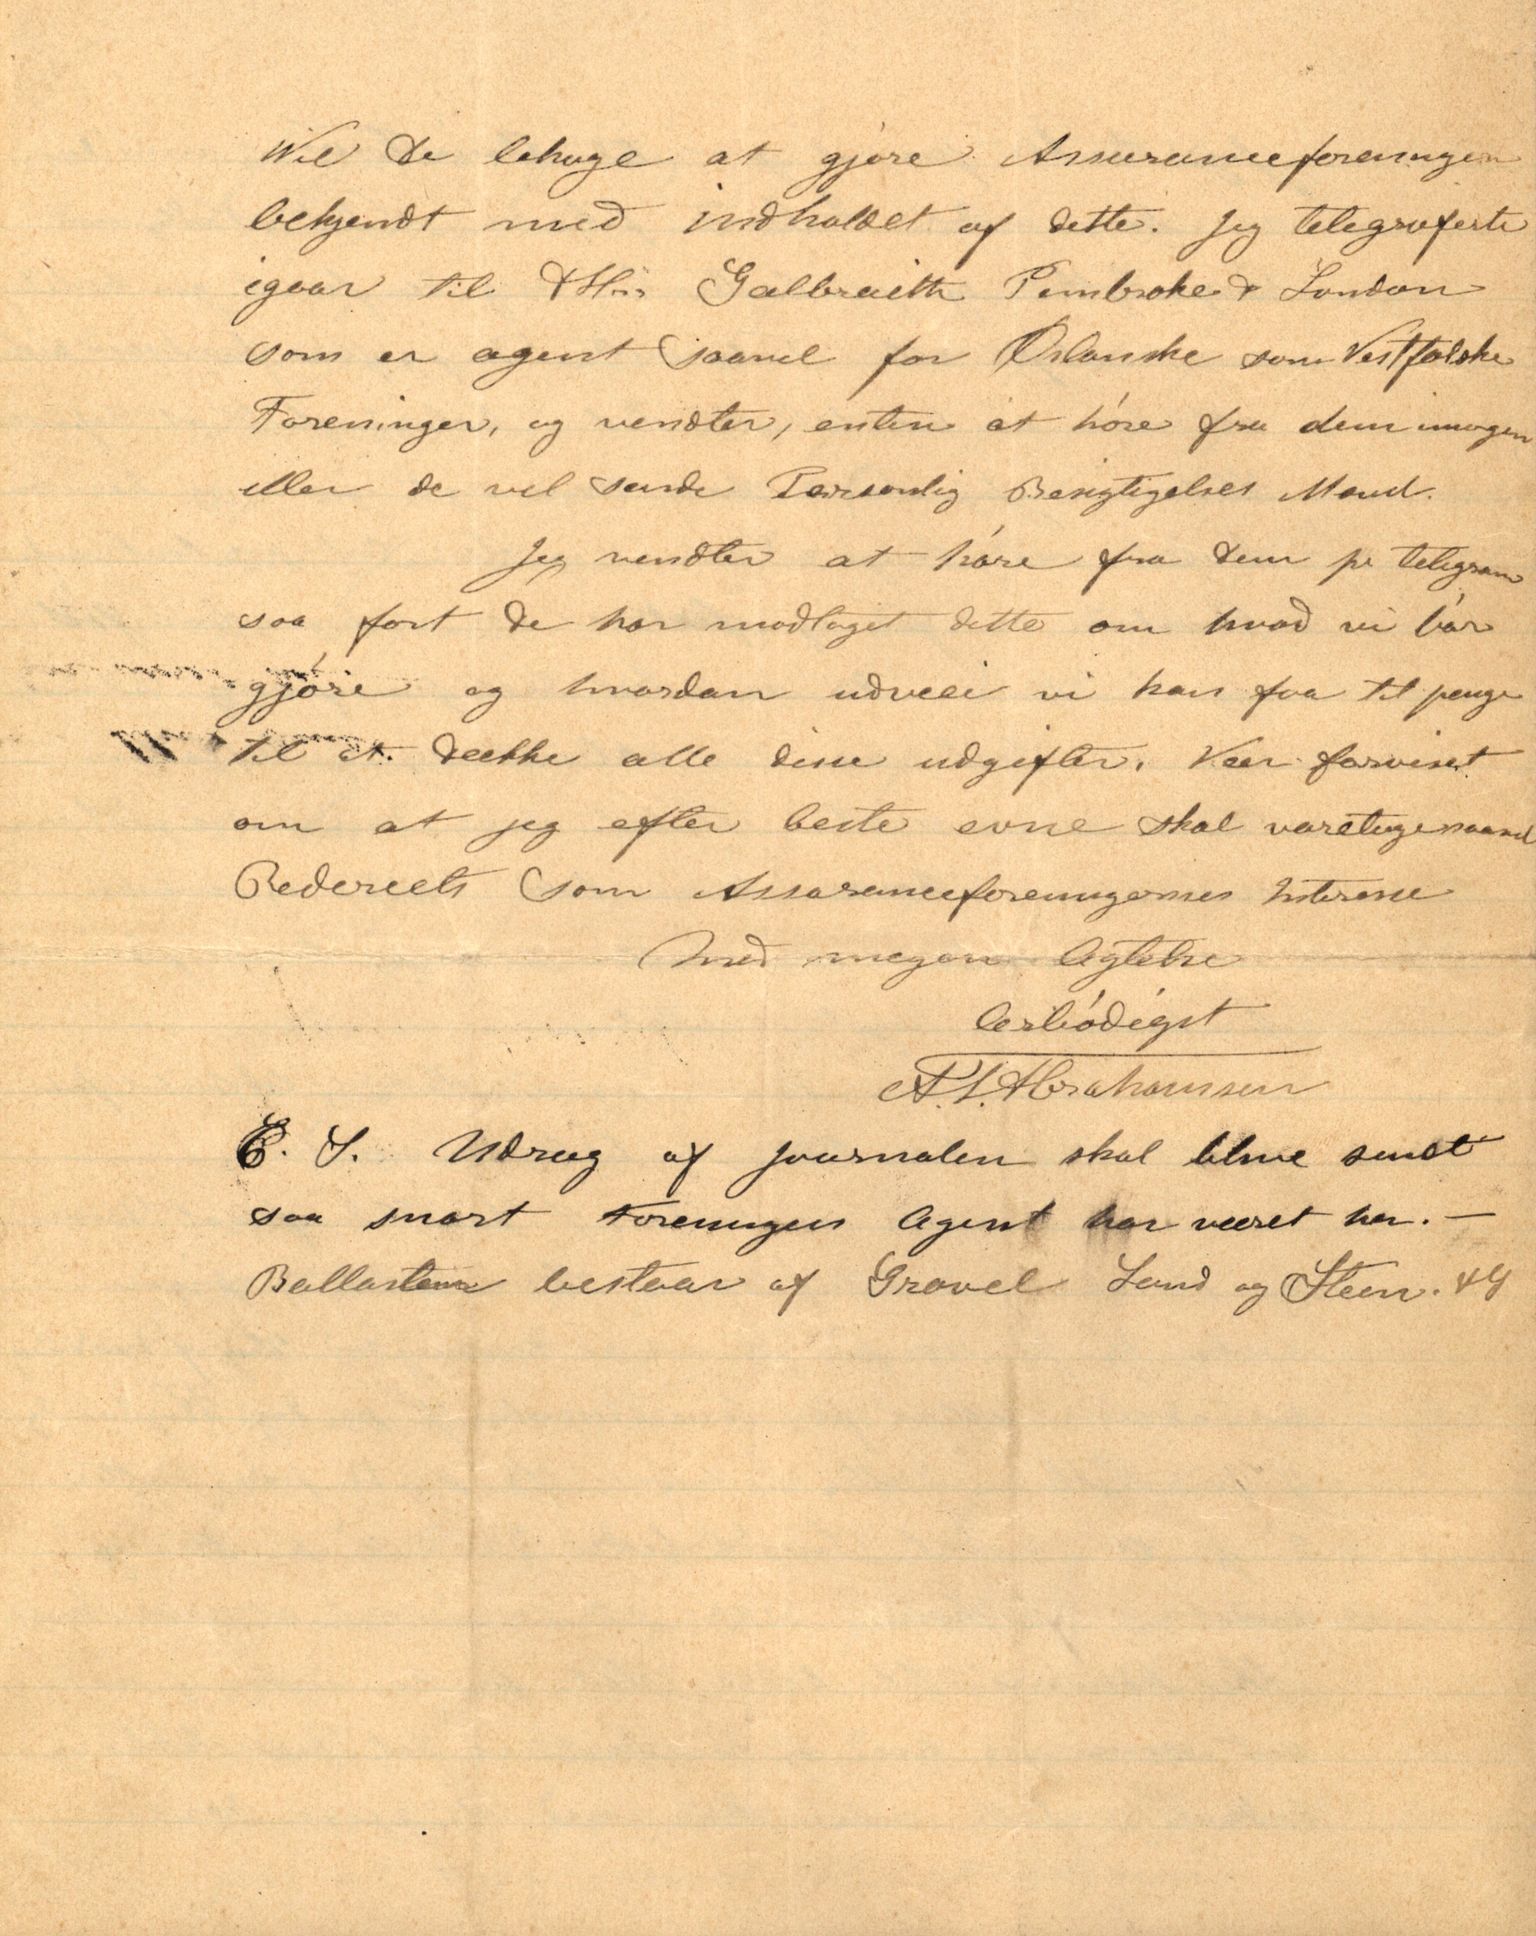 Vil De behage at gjøre Assuranceforeningen
bekjendt med indholdet af dette. Jeg telegraferte
igaar til Galbraith Pembroke & London
som er agent saavel for Oslanske som Vestfolske
Foreninger, og vendter, enten at høre fra dem imorgen
eller de vil sende Personlig Besigtigelses Mand.
Jeg vendter at høre fra Dem pr telegram
saa fort De har modtaget dette om hvad vi bør
gjøre og hvordan udveie vi kan faa til penge
til at dække alle disse udgifter. Vær forvisset
om at jeg efter beste evne skal varetage saavel
Rederiets som Assuranceforeningernes Interesse
Med megen Agtelse
Ærbødigst
A. L. Abrahamsen
P. S. Udrag af journalen skal blive sendt
saa snart Foreningens Agent har været her. —
Ballasten bestaar af Gravel Sand og Steen.